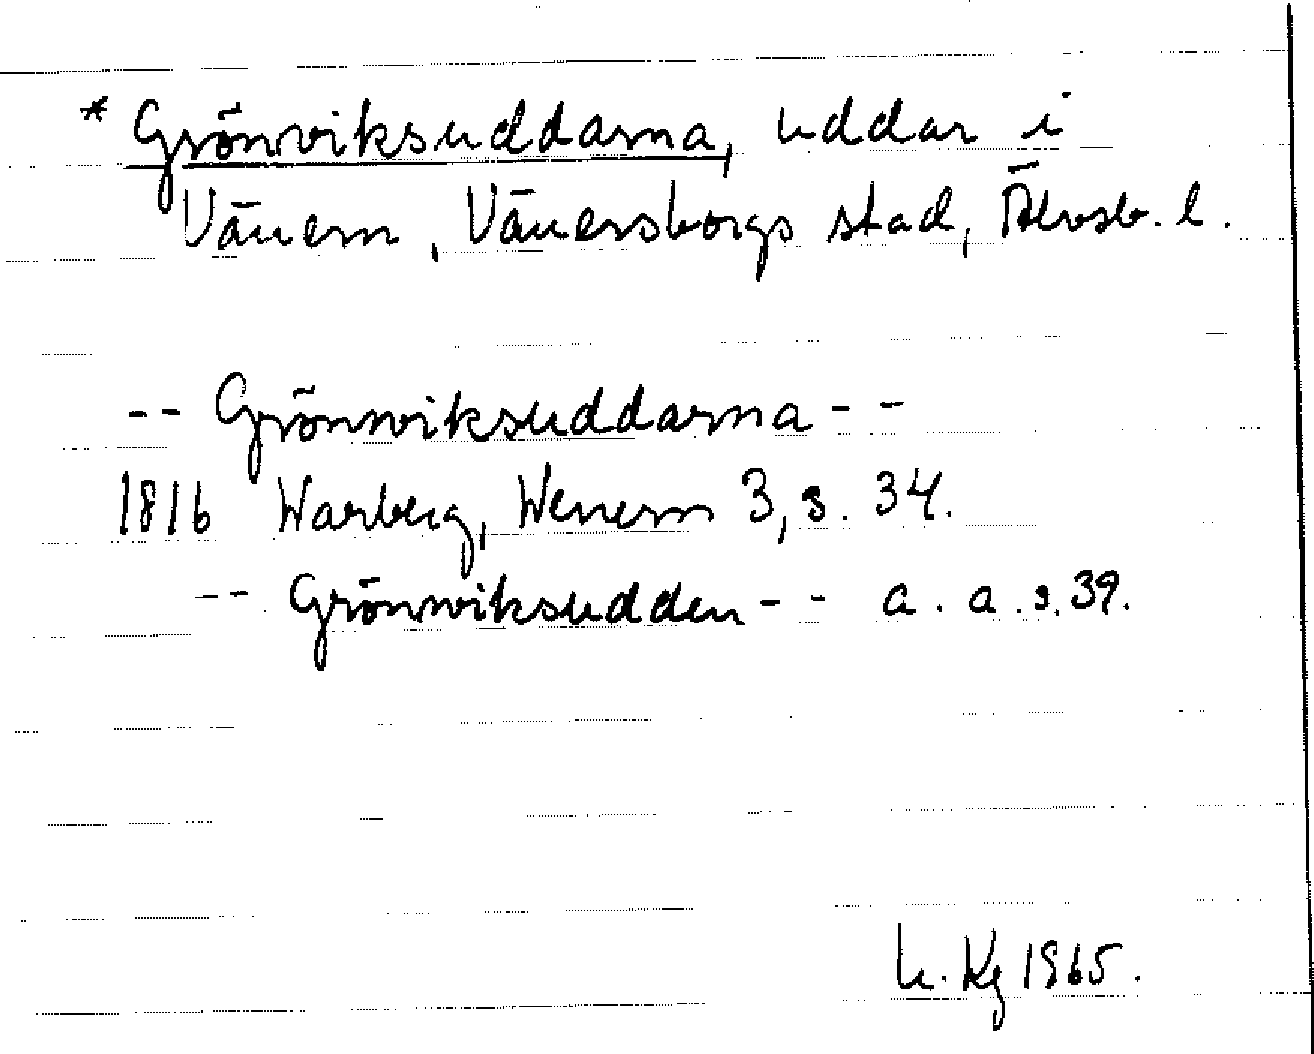 * Grönviksuddarna, uddar i
Vänern, Vänersborgs stad, Älvsb. l.
-- Grönnviksuddarna --
1816 Warberg, Wenern 3, s. 34.
-- Grönnviksudden -- a. a. s. 39.
Kg 1965.